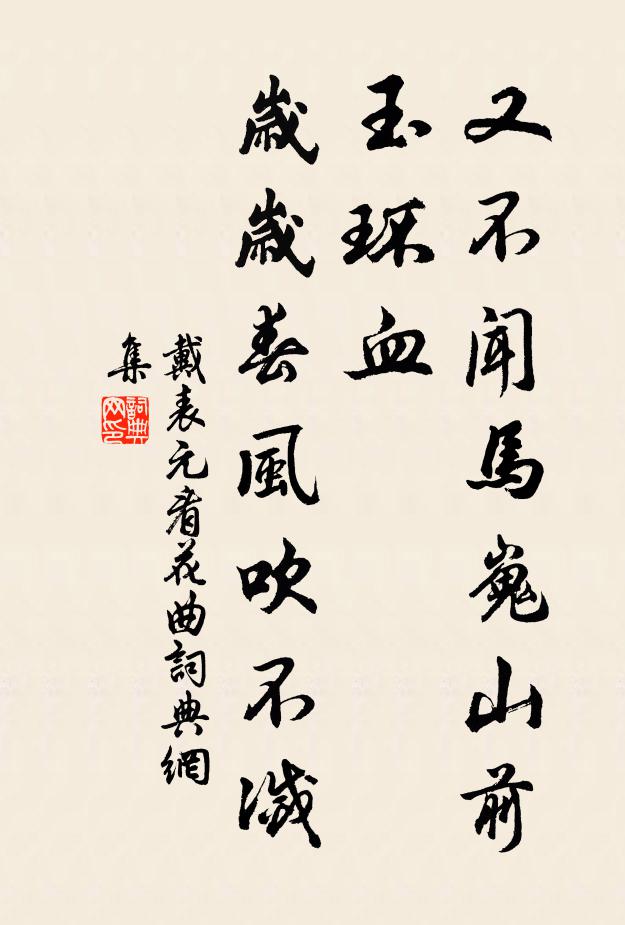 又不聞馬嵬山前
玉環血
歲歲春風吹不滅
戴表元看花曲詞典網
集
詞典
网印